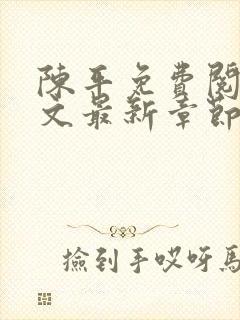 陳平免費閱
文最新章節
撿到手哎呀馬